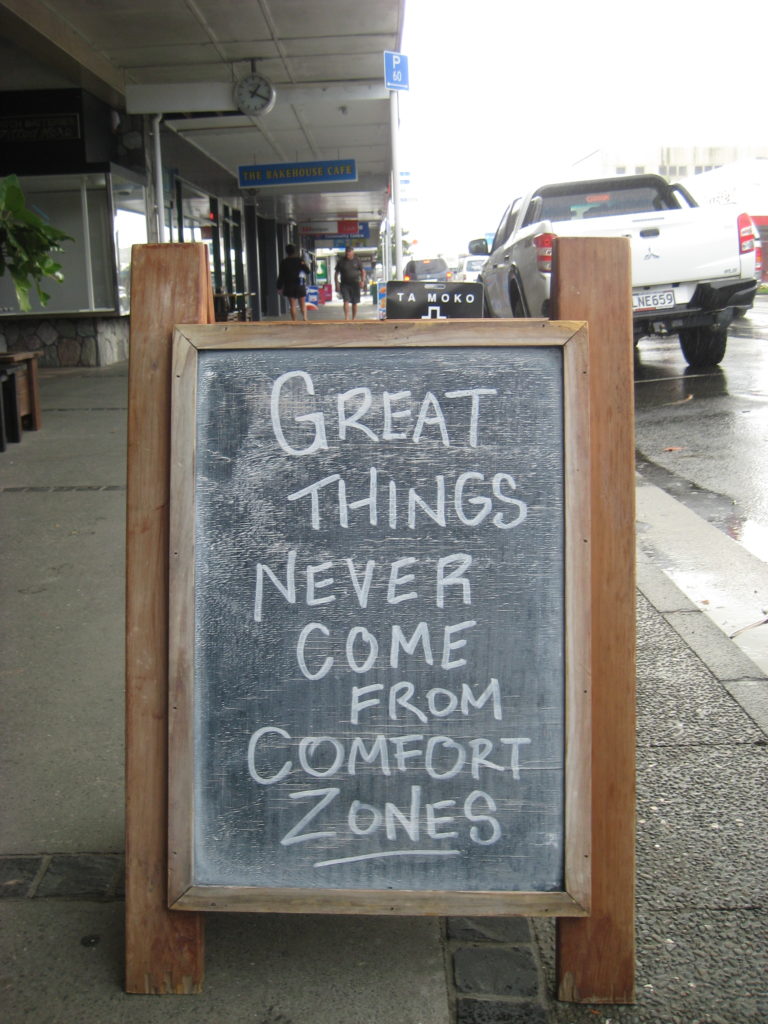 P
60
THE BAKEHOUSE CAFE
TA MOKO
LNE659
GREAT
THINGS
NEVER
COME
FROM
COMFORT
ZONES